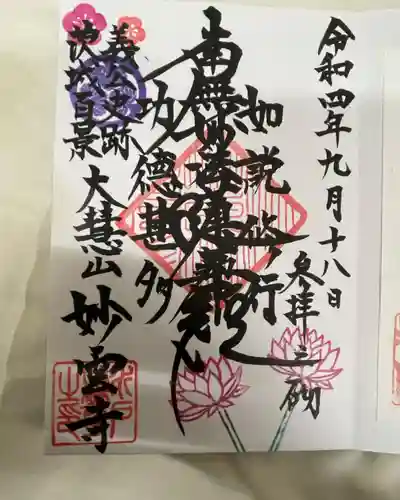 令和四年九月十八日
参拝之砌
如説修行
南無妙法蓮華経
功徳甚多
義公史跡
茨城百景
大慧山妙雲寺